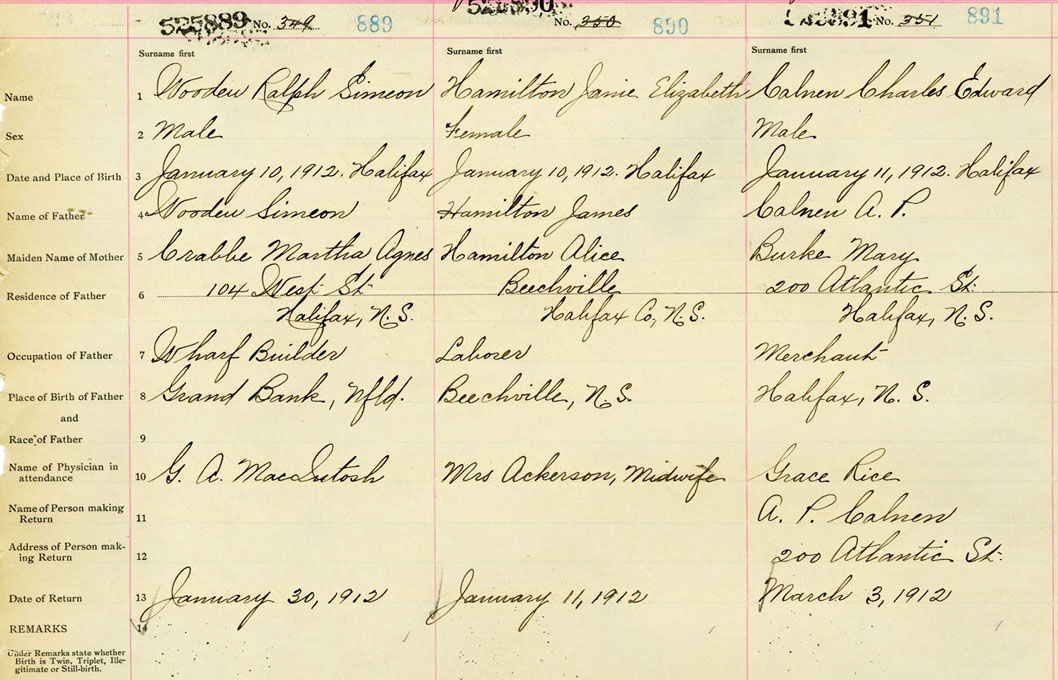 525889 No. 349 889
No. 350 890
No. 351 891
Surname first Surname first Surname first
Name 1 Wooden Ralph Simeon Hamilton Janie Elizabeth Calnen Charles Edward
Sex 2 Male Female Male
Date and Place of Birth 3 January 10, 1912. Halifax January 10, 1912. Halifax January 11, 1912. Halifax
Name of Father 4 Wooden Simeon Hamilton James Calnen A. P.
Maiden Name of Mother 5 Crabbe Martha Agnes Hamilton Alice Burke Mary
Residence of Father 6 104 West St. Beechville 200 Atlantic St.
Halifax, N.S. Halifax Co, N.S. Halifax, N.S.
Occupation of Father 7 Wharf Builder Laborer Merchant
Place of Birth of Father 8 Grand Bank, Nfld. Beechville, N.S. Halifax, N. S.
and
Race of Father 9
Name of Physician in
attendance 10 G. A. MacIntosh Mrs Ackerson, Midwife Grace Rice
Name of Person making
Return 11 A. P. Calnen
Address of Person mak-
ing Return 12 200 Atlantic St.
Date of Return 13 January 30, 1912 January 11, 1912 March 3, 1912
REMARKS 14
Under Remarks state whether
Birth is Twin, Triplet, Ille-
gitimate or Still-birth.